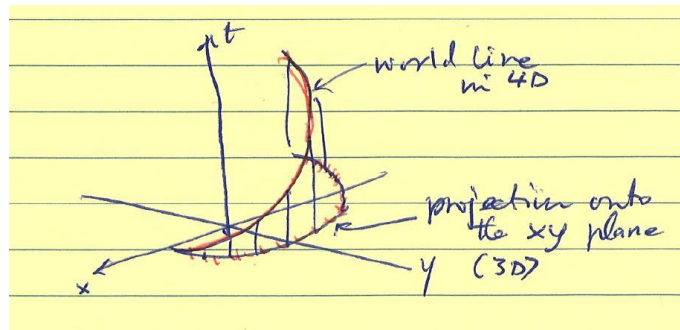 t
world line
in 4D
projection onto
the xy plane
(3D)
y
x